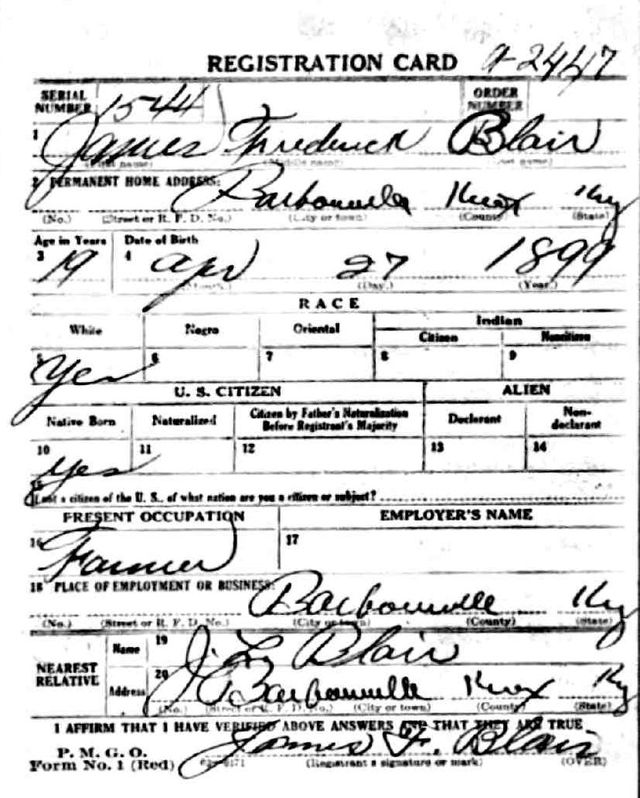 REGISTRATION CARD A-2447
SERIAL NUMBER 1544 ORDER NUMBER
1 James Frederick Blair
(First name) (Middle name) (Last name)
2 PERMANENT HOME ADDRESS: Barbourville Knox Ky
(No.) (Street or R. F. D. No.) (City or town) (County) (State)
Age in Years Date of Birth
3 19 4 Apr 27 1899
(Month.) (Day.) (Year.)
RACE
White Negro Oriental Indian
Citizen Noncitizen
5 Yes 6 7 8 9
U. S. CITIZEN ALIEN
Native Born Naturalized Citizen by Father's Naturalization Before Registrant's Majority Declarant Non-declarant
10 Yes 11 12 13 14
15
If not a citizen of the U. S., of what nation are you a citizen or subject?
PRESENT OCCUPATION EMPLOYER'S NAME
16 Farmer 17
18 PLACE OF EMPLOYMENT OR BUSINESS: Barbourville Ky
(No.) (Street or R. F. D. No.) (City or town) (County) (State)
NEAREST RELATIVE Name 19 J. L. Blair
Address 20 Barbourville Knox Ky
(No.) (Street or R. F. D. No.) (City or town) (County) (State)
I AFFIRM THAT I HAVE VERIFIED ABOVE ANSWERS AND THAT THEY ARE TRUE
P. M. G. O.
Form No. 1 (Red) James F. Blair
(Registrant's signature or mark) (OVER)